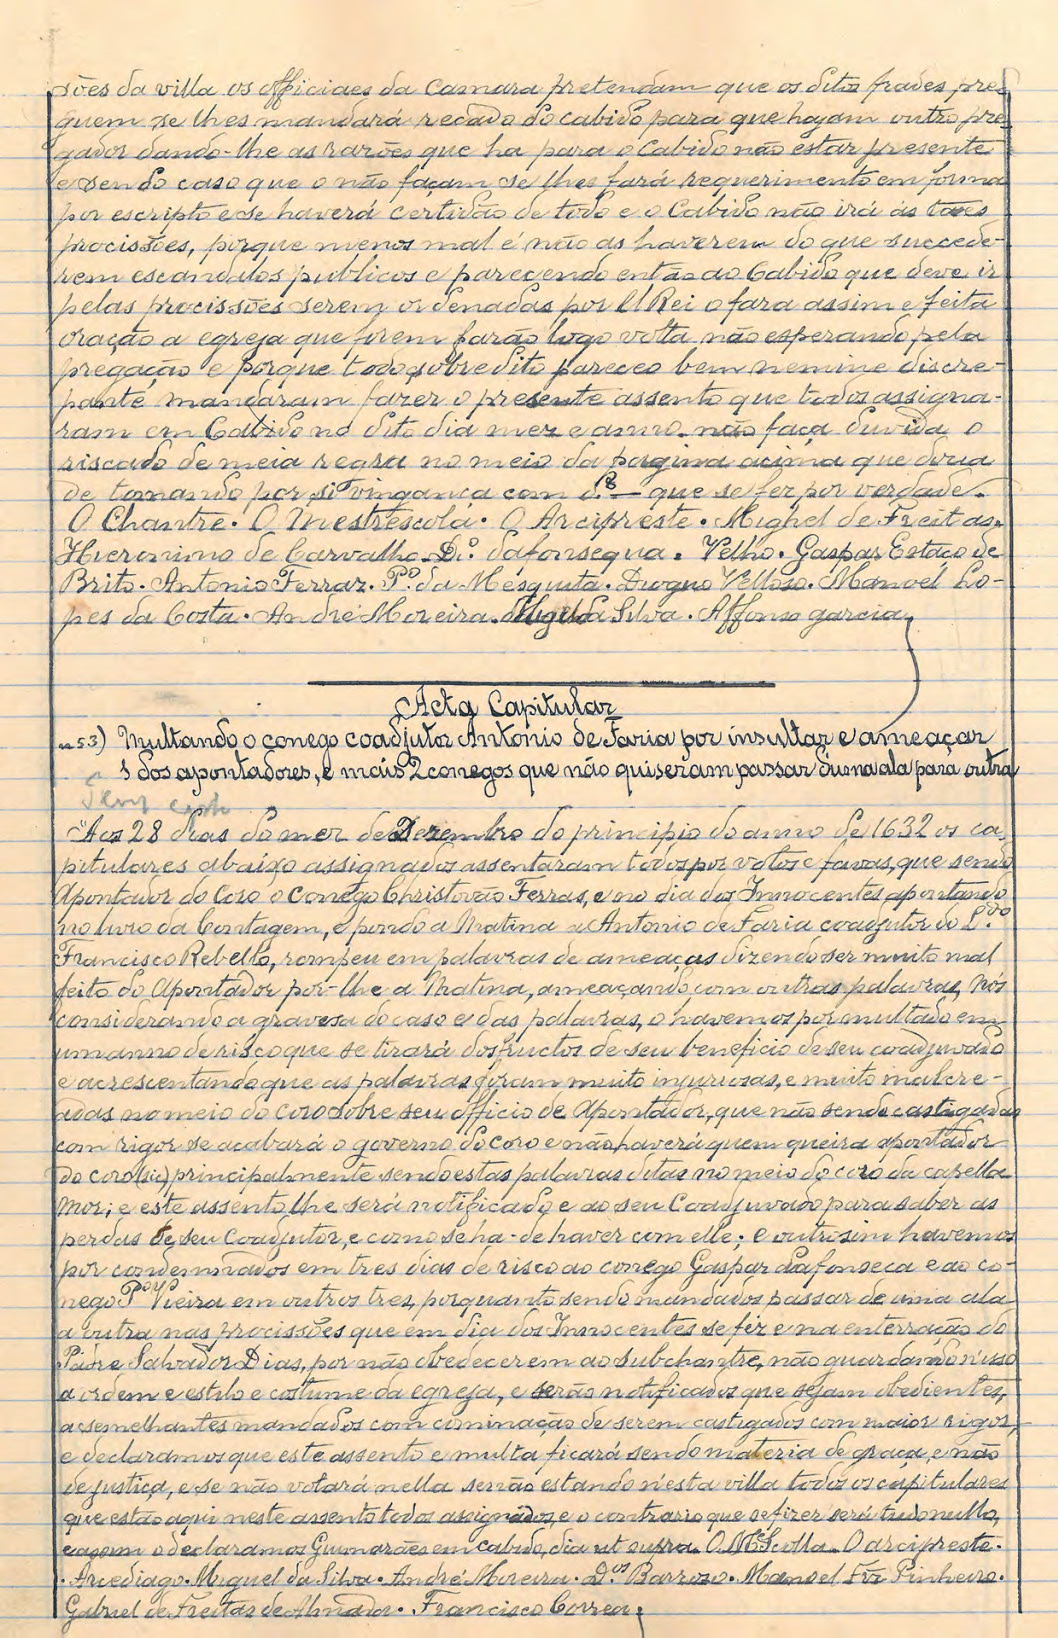 sões da villa os officiaes da Camara pretendam que os ditos frades pre-
guem se lhes mandará recado do cabido para que hajam outro pre-
gador dando-lhe as razões que ha para o Cabido não estar presente
e sendo caso que o não façam se lhes fará requerimento em forma
por escripto e se haverá certidão de todo e o Cabido não irá ás taes
procissões, porque menos mal é não as haverem do que succede-
rem escandalos publicos e parecendo então ao Cabido que deve ir
pelas procissões serem ordenadas por El Rei o fara assim e feita
oração a egreja que forem farão logo volta não esperando pela
pregação e porque todo sobredito pareceo bem nemine discre-
pante mandaram fazer o presente assento que todos assigna-
ram em Cabido no dito dia mez e anno. não faça duvida o
riscado de meia regra no meio da pagina acima que dizia
de tomando por si vingança com d.ª — que se fez por verdade.
O Chantre. O Mestrescola. O Arcipreste. Mighel de Freitas.
Hieronimo de Carvalho. D.º dafonsequa. Velho. Gaspar Estaço de
Brito. Antonio Ferraz. P.º da Mesquita. Diogno Velloso. Manoel Lo-
pes da Costa. André Moreira. Miguel da Silva. Affonso garcia.
Acta Capitular
nº 53) Multando o conego coadjutor Antonio de Faria por insultar e ameaçar
1 dos apontadores, e mais 2 conegos que não quiseram passar duma ala para outra
"Aos 28 dias do mez de Dezembro do principio do anno de 1632 os ca-
pitulares abaixo assignados assentaram todos por votos e favas, que sendo
Apontador do Coro o Conego Christovão Ferras, e no dia dos Innocentes apontando
no livro da Contagem, e pondo a Matina a Antonio de Faria coadjutor do L.do
Francisco Rebello, rompeu em palavras de ameaças dizendo ser muito mal
feito do Apontador por-lhe a Matina, ameaçando com outras palavras, Nós
considerando a graveza do caso e das palavras, o havemos por multado em
um anno de risco que se tirará dos fructos de seu beneficio de seu coadjuvado
e acrescentando que as palavras foram muito injuriosas, e muito malcre-
adas no meio do coro sobre seu officio de Apontador, que não sendo castigadas
com rigor se acabará o governo do coro e não haverá quem queira apontador
do coro (sic) principalmente sendo estas palavras ditas no meio do coro da capella
Mor; e este assento lhe será notificado e ao seu Coadjuvado para saber as
perdas de seu Coadjutor, e como se ha-de haver com elle; e outrosim havemos
por condemnados em tres dias de risco ao conego Gaspar dafonseca e ao co-
nego P.º Vieira em outros tres, porquanto sendo mandados passar de uma ala
a outra nas procissões que em dia dos Innocentes se fez e na enterração do
Padre Salvador Dias, por não obedecerem ao subchantre, não guardando n'isso
a ordem e estilo e costume da egreja, e serão notificados que sejam obedientes,
a semelhantes mandados com cominação de serem castigados com maior rigor,
e declaramos que este assento e multa ficará sendo materia de graça, e não
de justiça, e se não votará nella senão estando n'esta villa todos os capitulares
que estão aqui neste assento todos assignados, e o contrario que se fizer será tudo nullo,
e assim o declaramos Guimarães em cabido, dia ut supra. O MeScolla. O arcipreste.
. Arcediago. Miguel da Silva. André Moreira. D.os Barrozo. Manoel Frz Pinheiro.
Gabriel de Freitas de Almada. Francisco Correa.